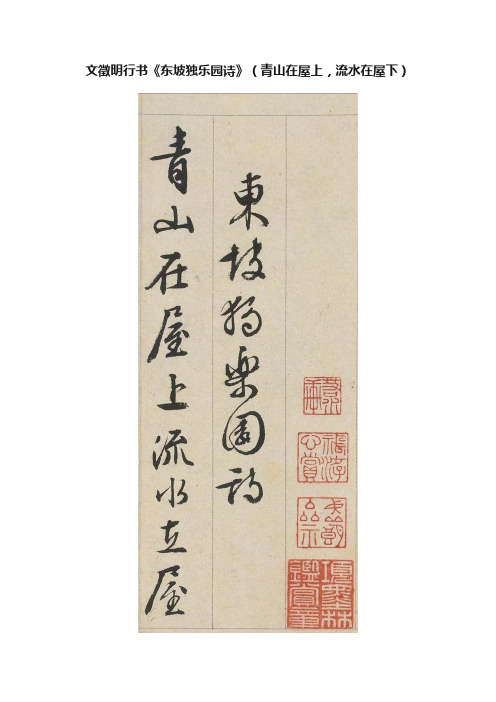 文徵明行书《东坡独乐园诗》（青山在屋上，流水在屋下）
東坡獨樂園詩
青山在屋上流水在屋
項墨林鑑賞章